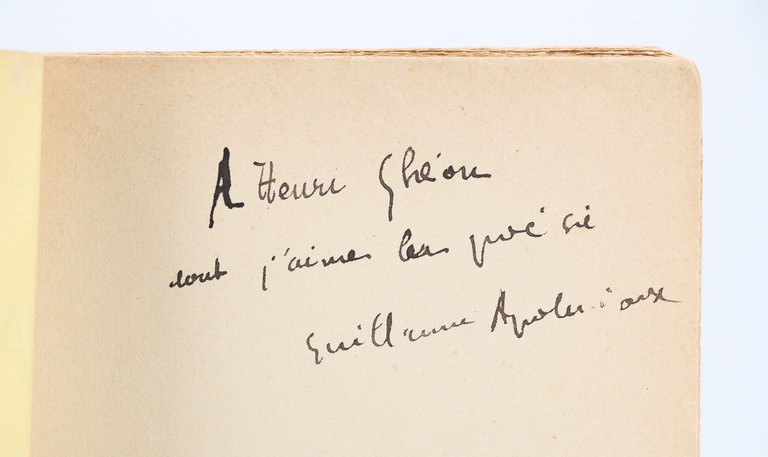 A Henri Ghéon
dont j'aime la poésie
Guillaume Apollinaire